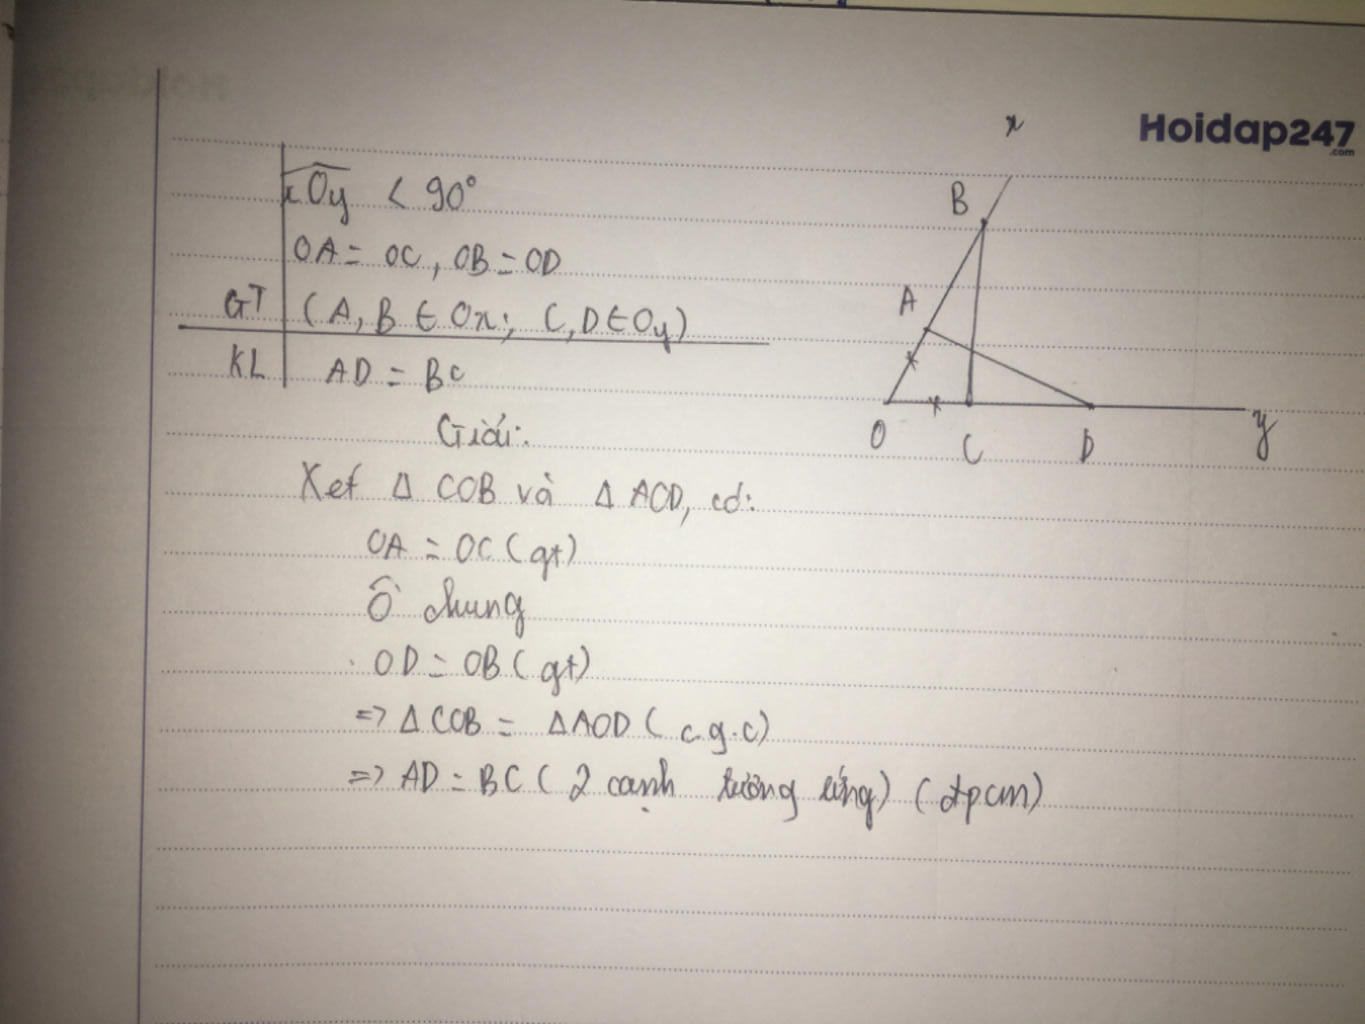 Hoidap247
.com
x
B
A
O
C
D
y
xOy < 90°
OA = OC, OB = OD
GT (A, B ∈ Ox; C, D ∈ Oy)
KL AD = BC
Giải:
Xét Δ COB và Δ AOD, có:
OA = OC (gt)
Ô chung
OD = OB (gt)
=> Δ COB = Δ AOD (c.g.c)
=> AD = BC (2 cạnh tương ứng) (đpcm)